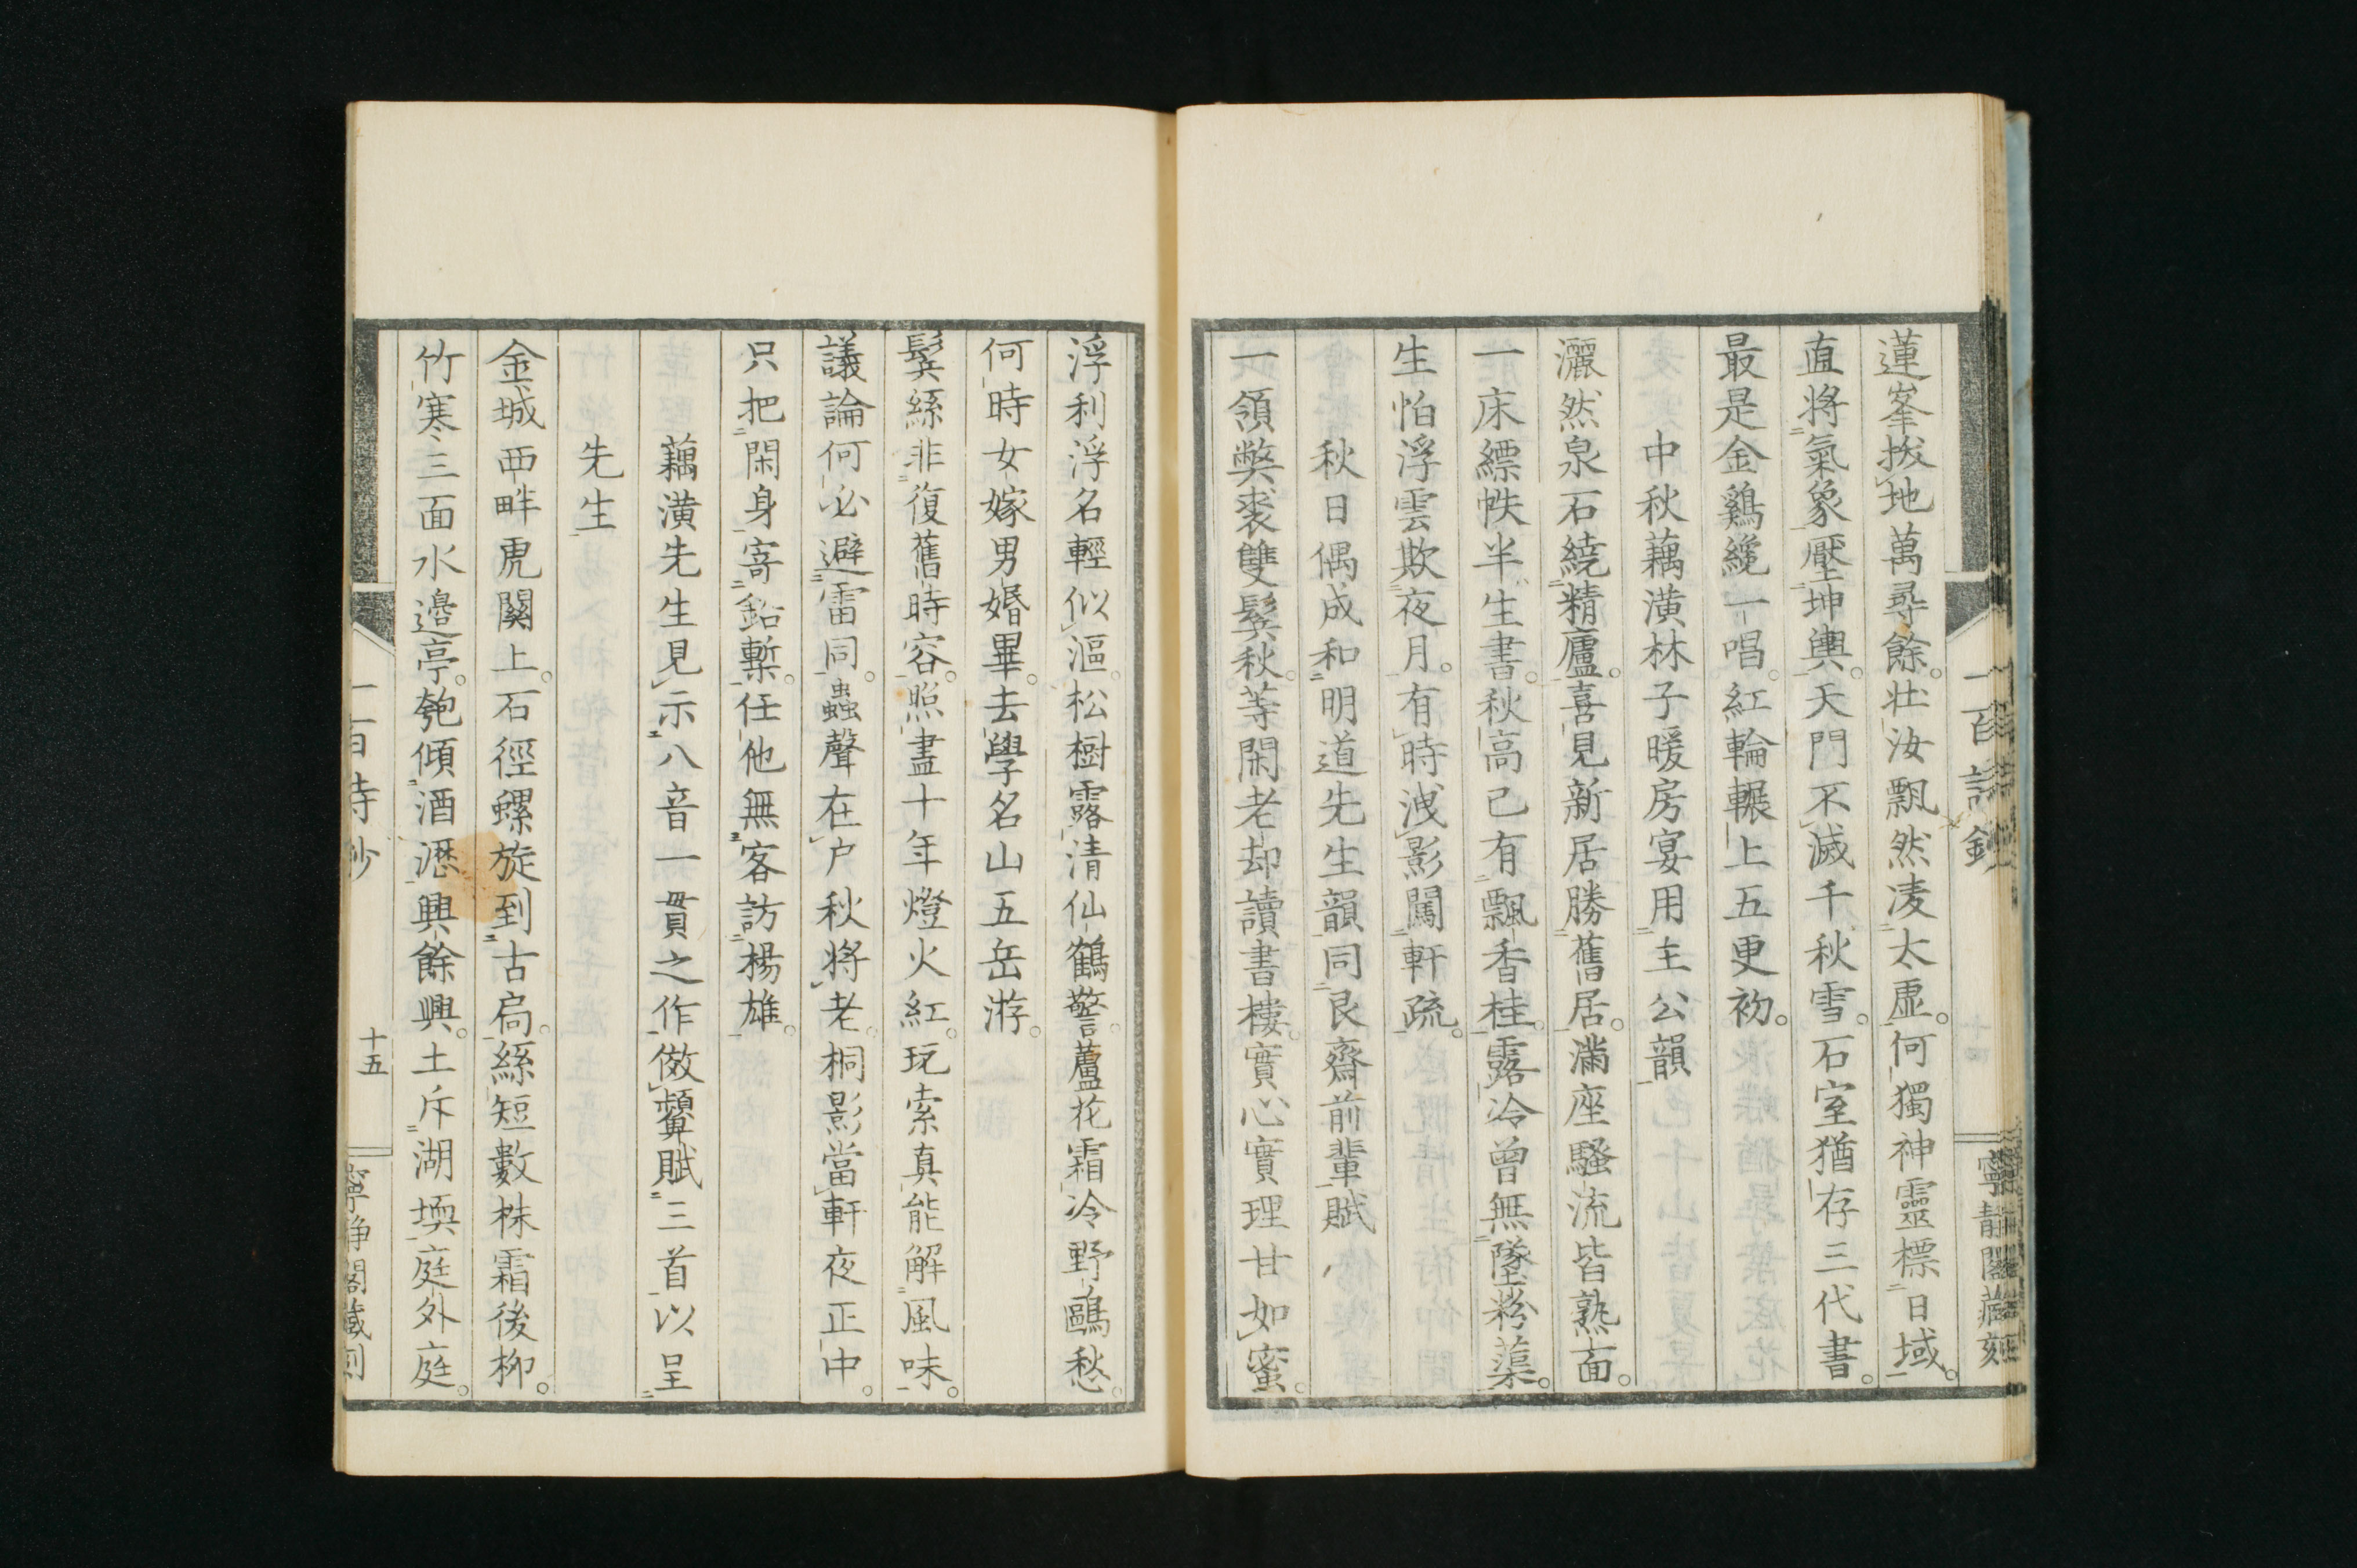 蓮峯拔地萬尋餘。壯汝飄然凌太虛。何獨神靈標日域。
直將氣象壓坤輿。天門不滅千秋雪。石室猶存三代書。
最是金鷄纔一唱。紅輪輾上五更初。
中秋藕潢林子暖房宴用主公韻
灑然泉石繞精廬。喜見新居勝舊居。滿座騷流皆熟面。
一床縹帙半生書。秋高已有飄香桂。露冷曾無墜粉蕖。
生怕浮雲欺夜月。有時洩影闖軒疏。
秋日偶成和明道先生韻同艮齋前輩賦
一領獘裘雙鬂秋。等閑老却讀書樓。實心實理甘如蜜。
浮利浮名輕似漚。松樹露清仙鶴警。蘆花霜冷野鷗愁。
何時女嫁男婚畢。去學名山五岳游。
鬂絲非復舊時容。照盡十年燈火紅。玩索真能解風味。
議論何必避雷同。蟲聲在戶秋將老。桐影當軒夜正中。
只把閑身寄鉛槧。任他無客訪楊雄。
藕潢先生見示八音一貫之作倣顰賦三首以呈
先生
金城西畔虎關上。石徑螺旋到古扃。絲短數株霜後柳。
竹寒三面水邊亭。匏傾酒瀝興餘興。土斥湖堧庭外庭。
十五
二百詩鈔
寧靜閣藏刻